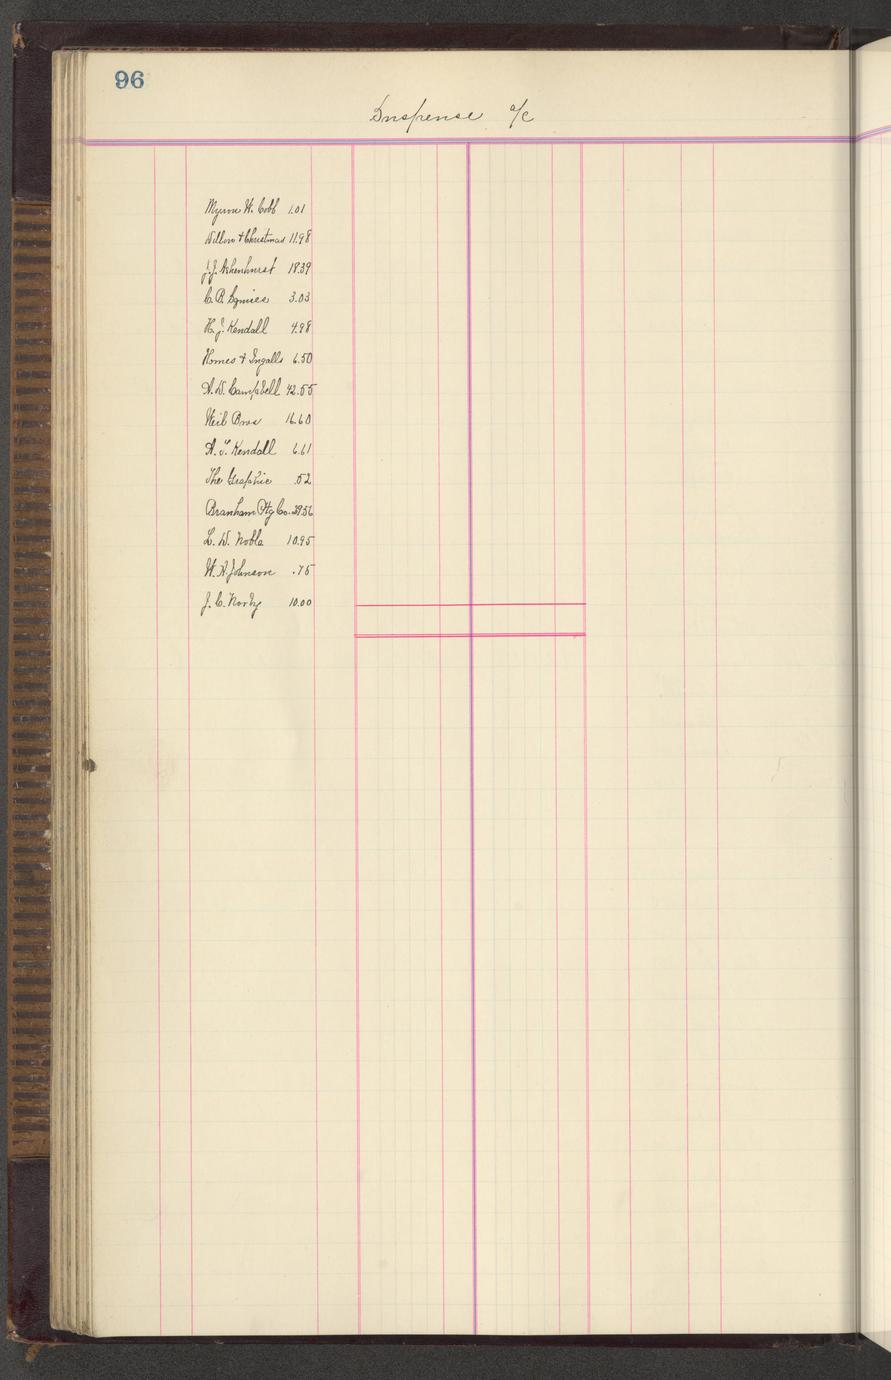 96
Suspense a/c
Myron H. Cobb 1.01
& Christmas 11.98
J.J. Ashenhurst 18.39
C.R. 3.03
H.J. Kendall 4.98
Homes & Ingalls 6.50
A.W. Campbell 42.55
Weil Bros 16.60
A.T. Kendall 6.61
The Graphic .52
Branham Ptg Co. 39.56
L.W. Noble 10.95
W.A. Johnson .75
J.C. 10.00